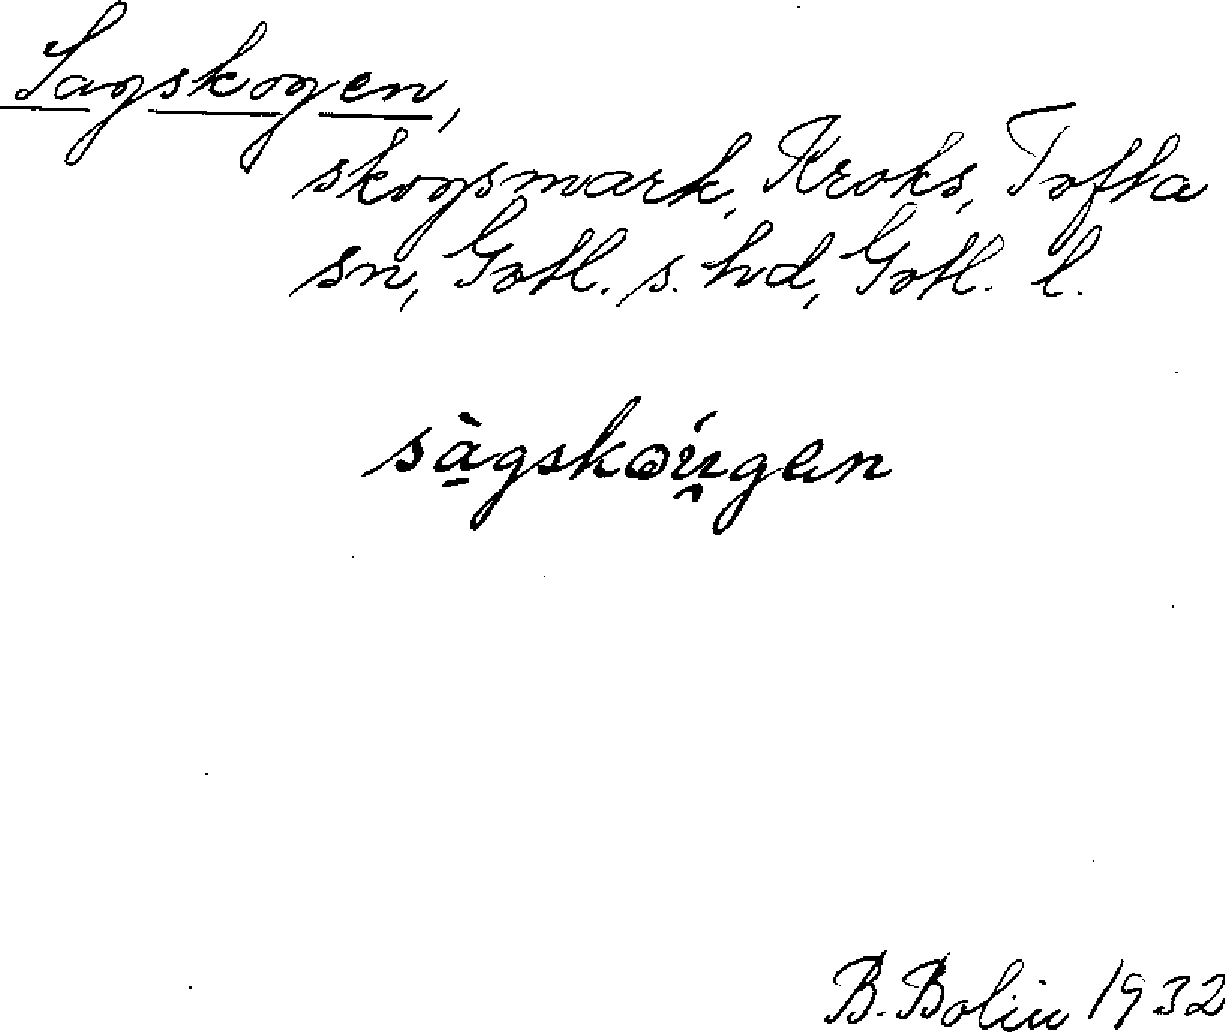 Sagskogen,
skogsmark, Kroks, Tofta
sn, Gotl. s. hd, Gotl. l.
sàgskoúgen
B. Bolin 1932